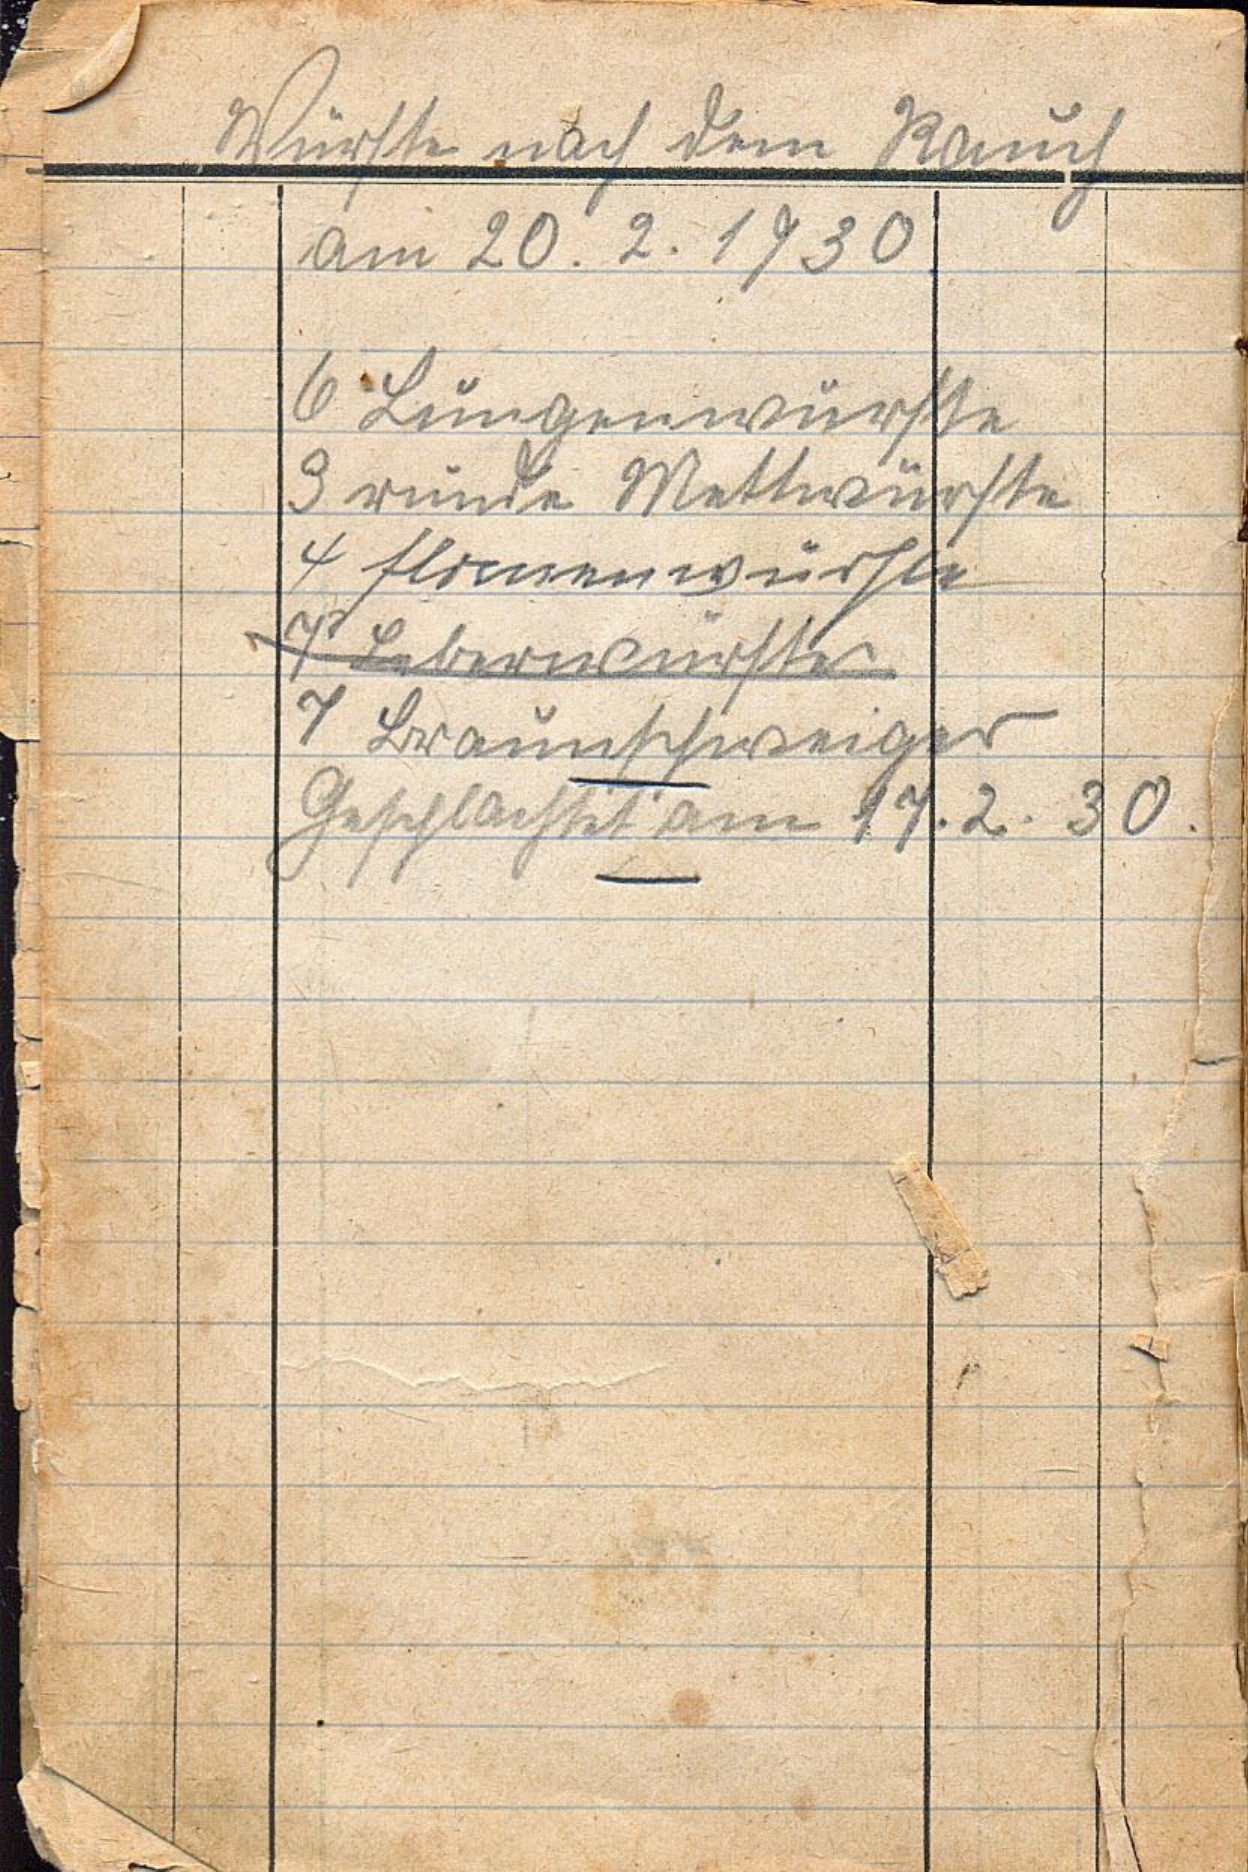 Würste nach dem Rauch
am 20. 2. 1930
6 Lungenwürste
3 runde Mettwürste
4 Flomenwürste
7 Leberwürste
7 Braunschweiger
Geschlachtet am 17. 2. 30.